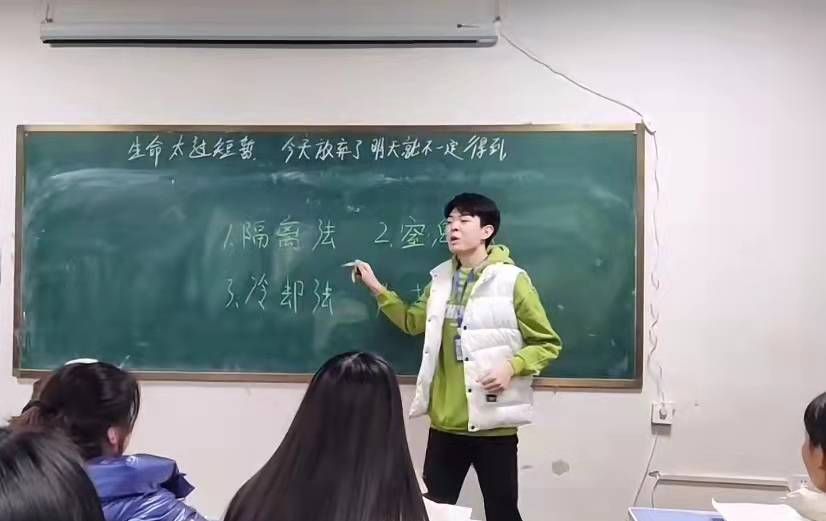 生命太过短暂 今天放弃了明天就不一定得到
1.隔离法 2.窒息
3.冷却法